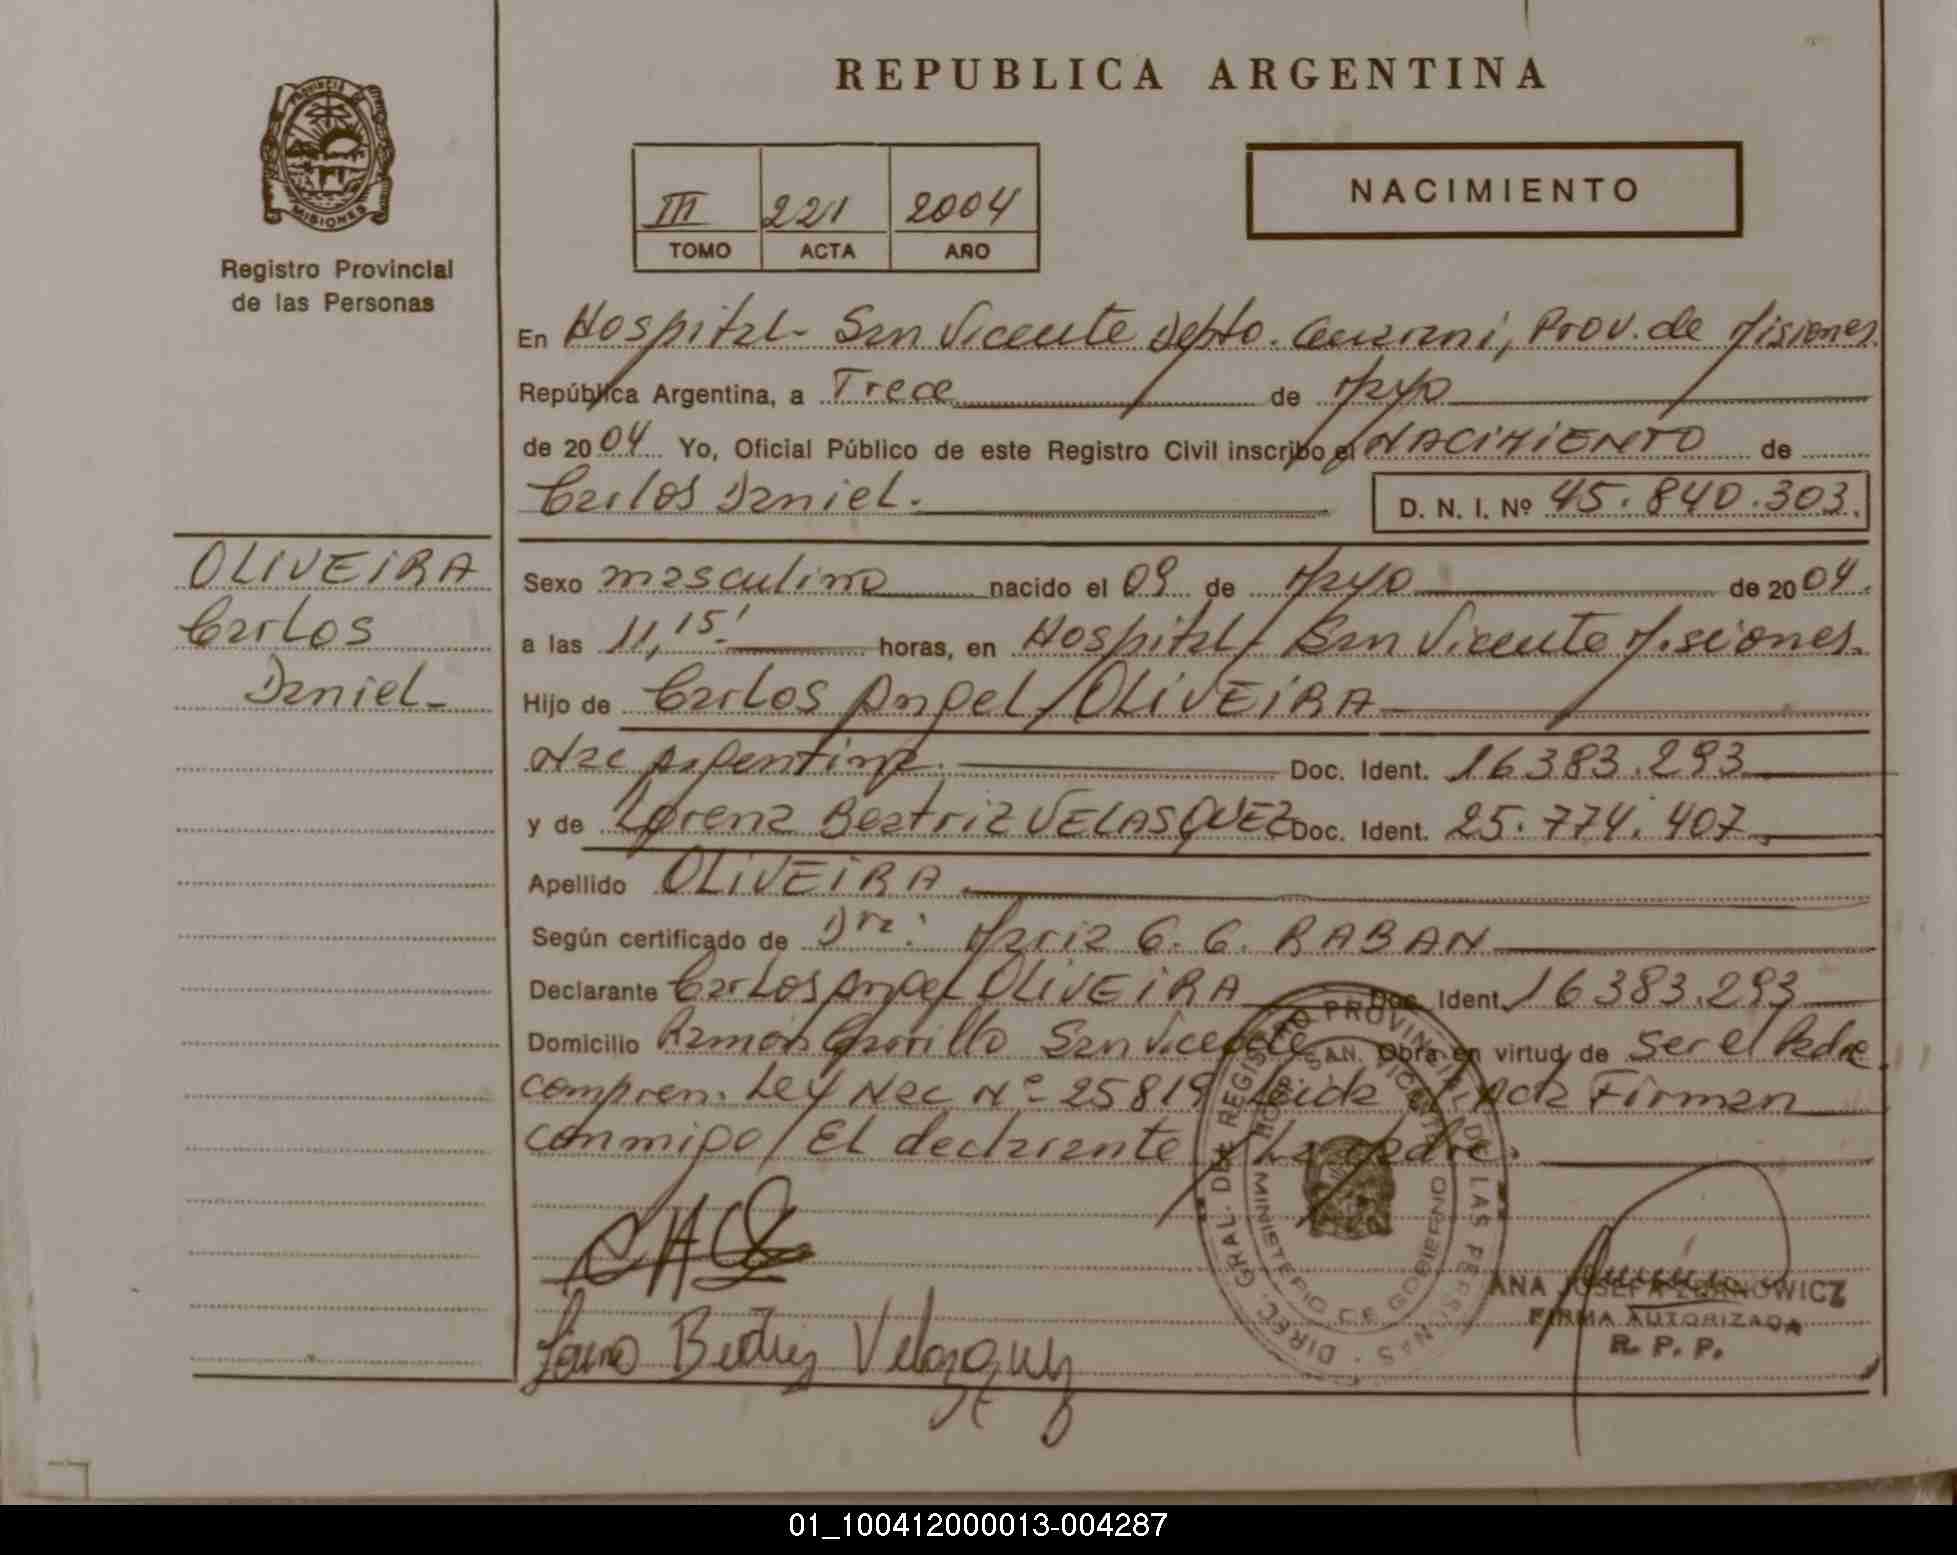 REPUBLICA ARGENTINA
PROVINCIA DE MISIONES
Registro Provincial
de las Personas
III 221 2004
TOMO ACTA AÑO
NACIMIENTO
En Hospital - San Vicente Depto. Guarani, Prov. de Misiones.
República Argentina, a Trece de Mayo
de 2004 Yo, Oficial Público de este Registro Civil inscribo el NACIMIENTO de
Carlos Daniel.
D. N. I. Nº 45.840.303.
OLIVEIRA
Carlos
Daniel-
Sexo masculino nacido el 09 de Mayo de 2004.
a las 11,15' horas, en Hospital - San Vicente Misiones.
Hijo de Carlos Angel OLIVEIRA
Nac Argentina. Doc. Ident. 16383.293
y de Lorena Beatriz VELASQUEZ Doc. Ident. 25.774.407
Apellido OLIVEIRA
Según certificado de Dra: Maria G. G. RABAN
Declarante Carlos Angel OLIVEIRA Doc. Ident. 16383.293
Domicilio Ramón San Vicente Obra en virtud de ser el Padre
compren. Ley Nac Nº 25819 Leida el Acta Firman
conmigo El declarante y La Madre.
DIREC. GRAL. DEL REGISTRO PROVINCIAL DE LAS PERSONAS
MINISTERIO DE GOBIERNO
HOSP. SAN VICENTE
ANA JOSEFA
FIRMA AUTORIZADA
R. P. P.
Beatriz Velazquez
01_100412000013-004287